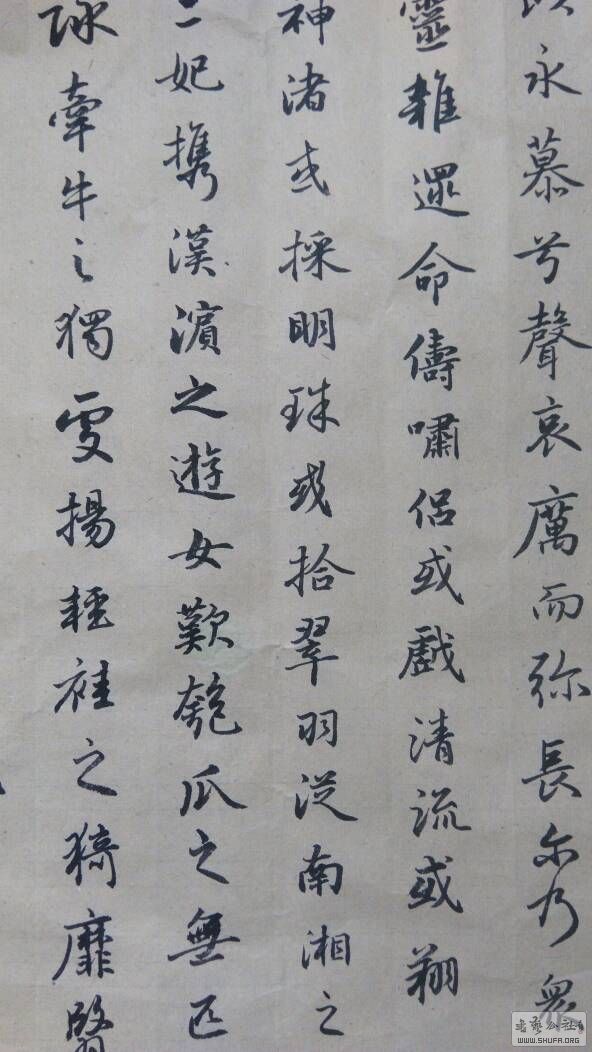 以永慕兮聲哀厲而弥長尔乃衆
靈雜遝命儔嘯侶或戲清流或翔
神渚或採明珠或拾翠羽從南湘之
二妃携漢濱之遊女歎匏瓜之無匹
詠牽牛之獨處揚輕袿之猗靡翳
书艺公社
WWW.SHUFA.ORG